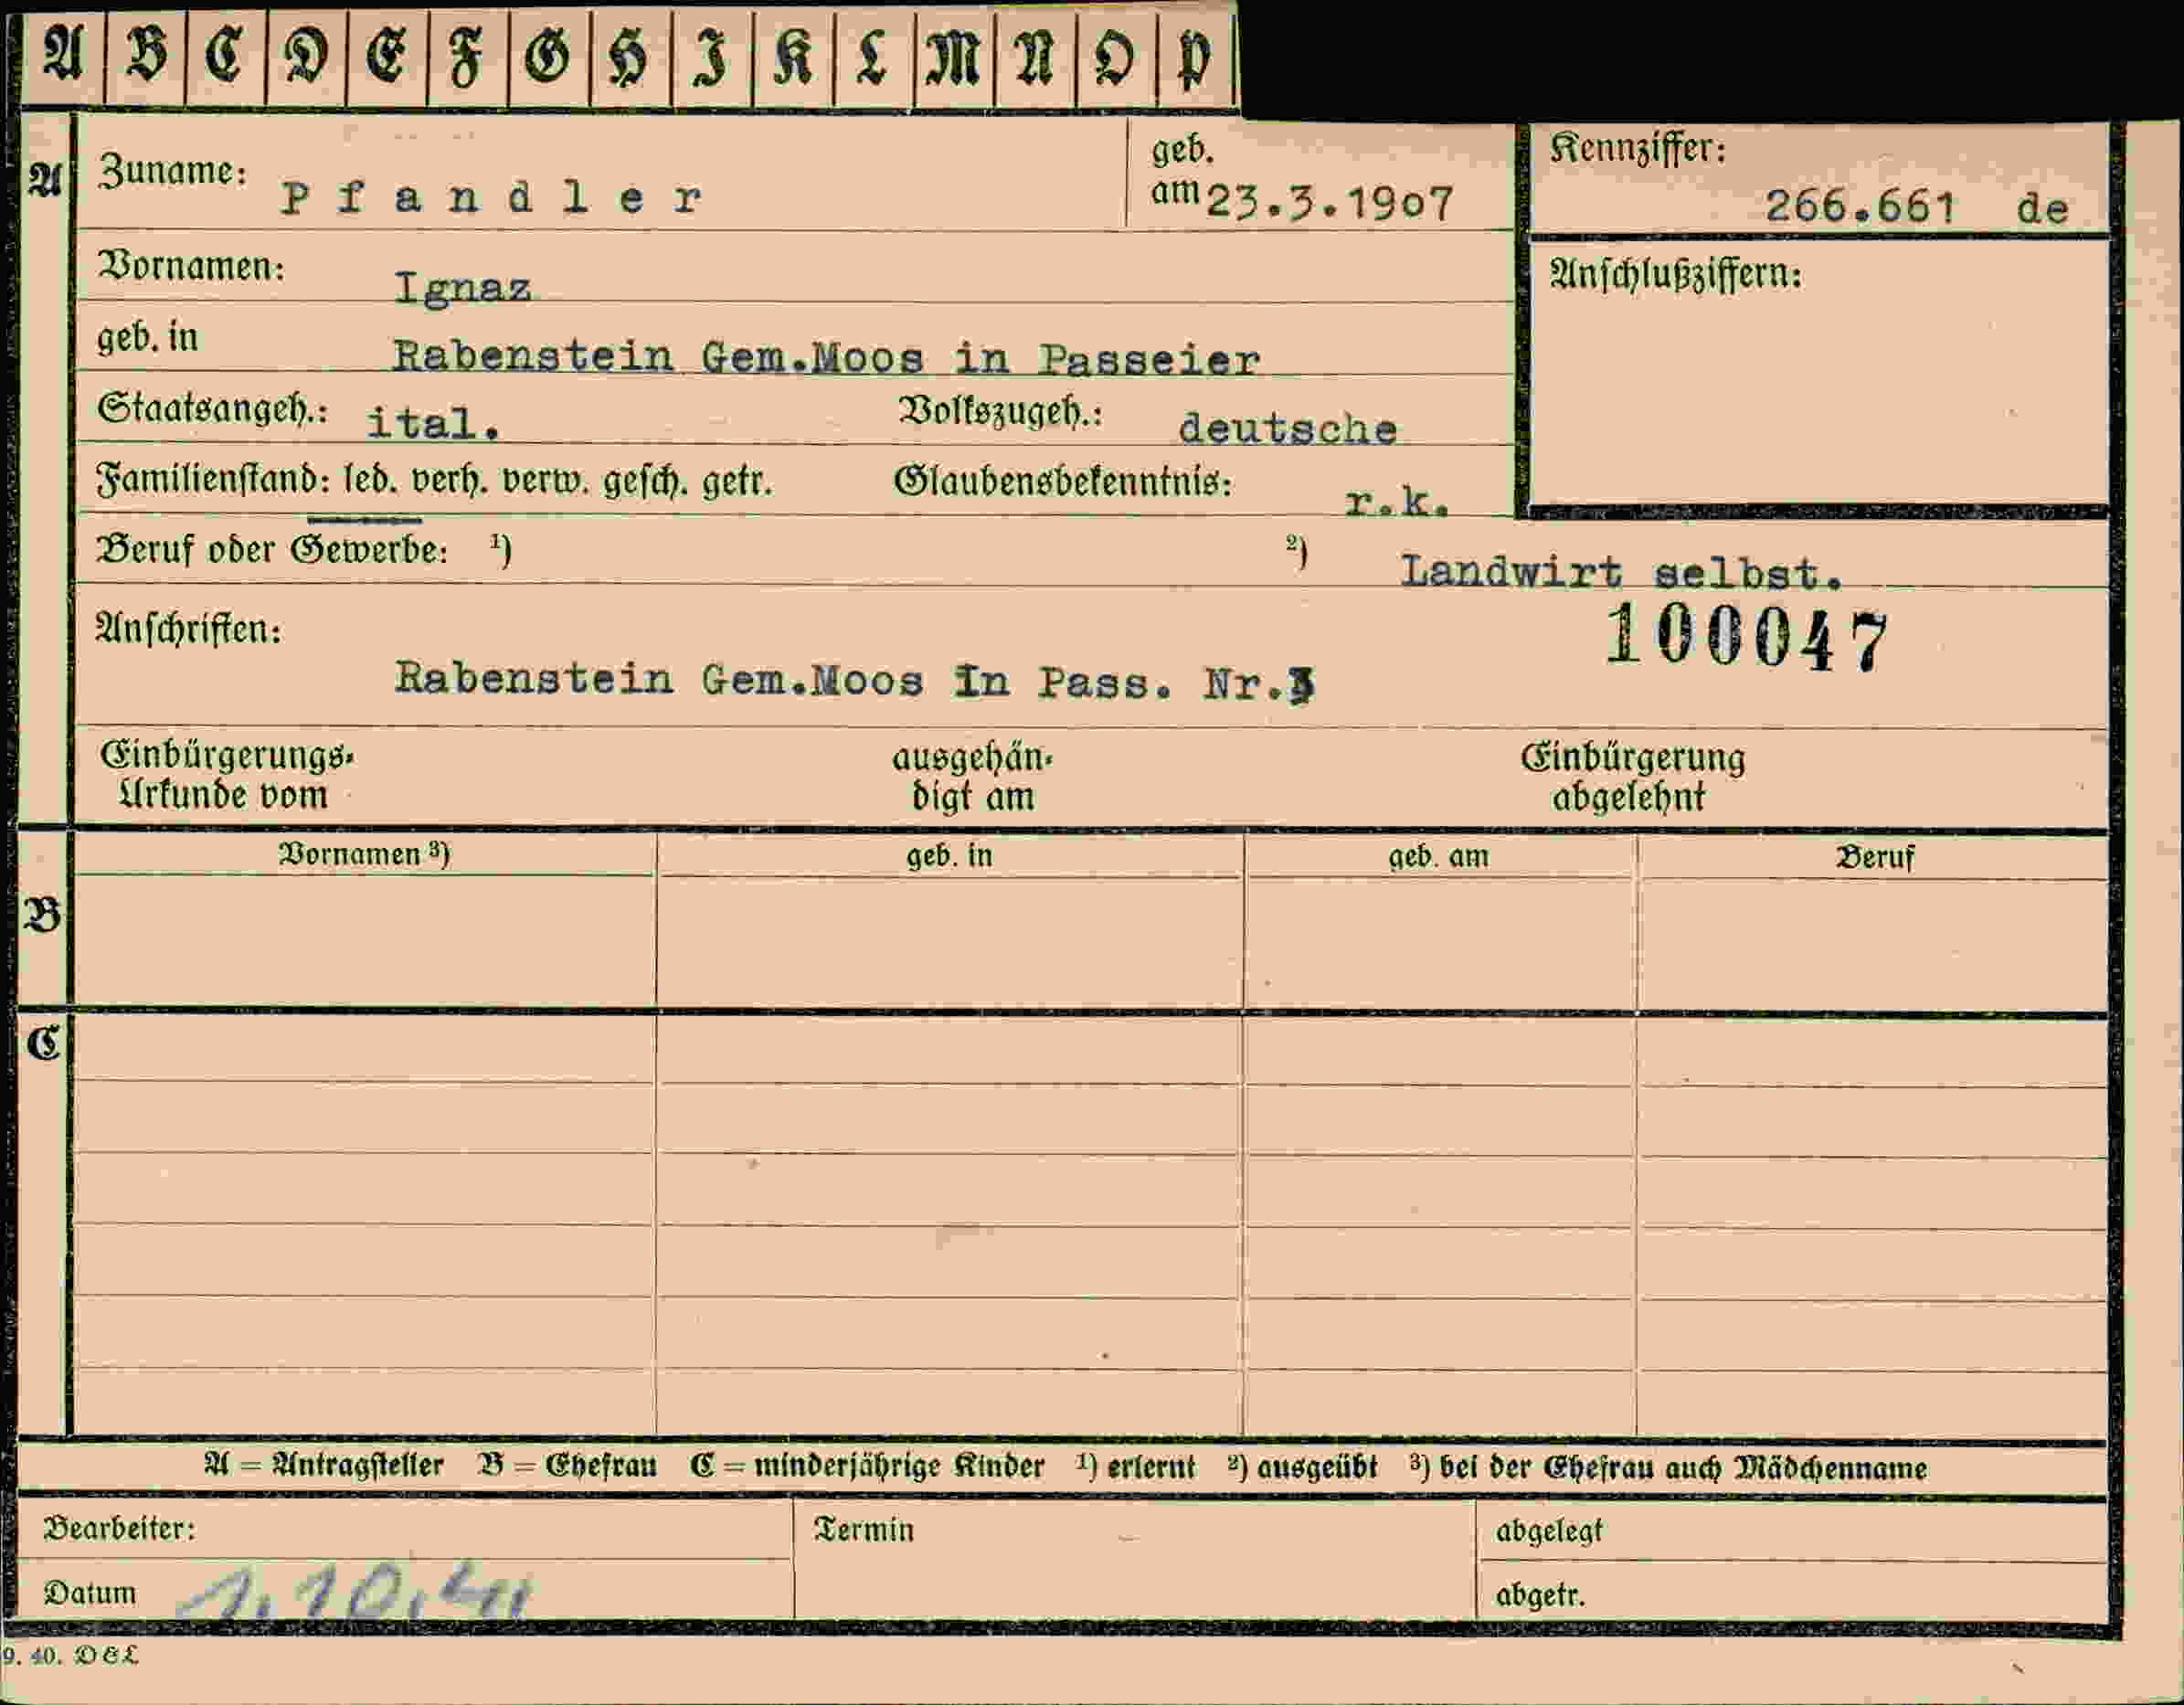 A B C D E F G H I K L M N O P
A Zuname: Pfandler geb. am 23.3.1907 Kennziffer: 266.661 de
Vornamen: Ignaz Anschlußziffern:
geb. in Rabenstein Gem.Moos in Passeier
Staatsangeh.: ital. Volkszugeh.: deutsche
Familienstand: led. verh. verw. gesch. getr. Glaubensbekenntnis: r.k.
Beruf oder Gewerbe: ¹) ²) Landwirt selbst.
100047
Anschriften:
Rabenstein Gem.Moos In Pass. Nr.3
Einbürgerungs- ausgehän- Einbürgerung
Urkunde vom digt am abgelehnt
Vornamen ³) geb. in geb. am Beruf
B
C
A = Antragsteller B = Ehefrau C = minderjährige Kinder ¹) erlernt ²) ausgeübt ³) bei der Ehefrau auch Mädchenname
Bearbeiter: Termin abgelegt
Datum 1.10.41 abgetr.
9. 40. D&L